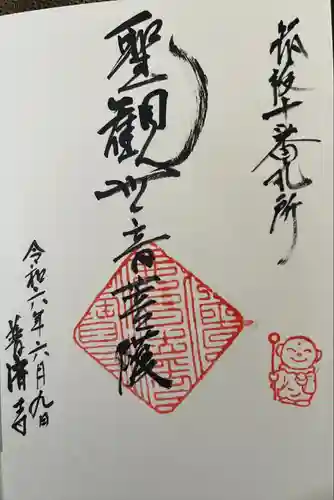 十番札所
聖観世音菩薩
令和六年六月九日
普済寺